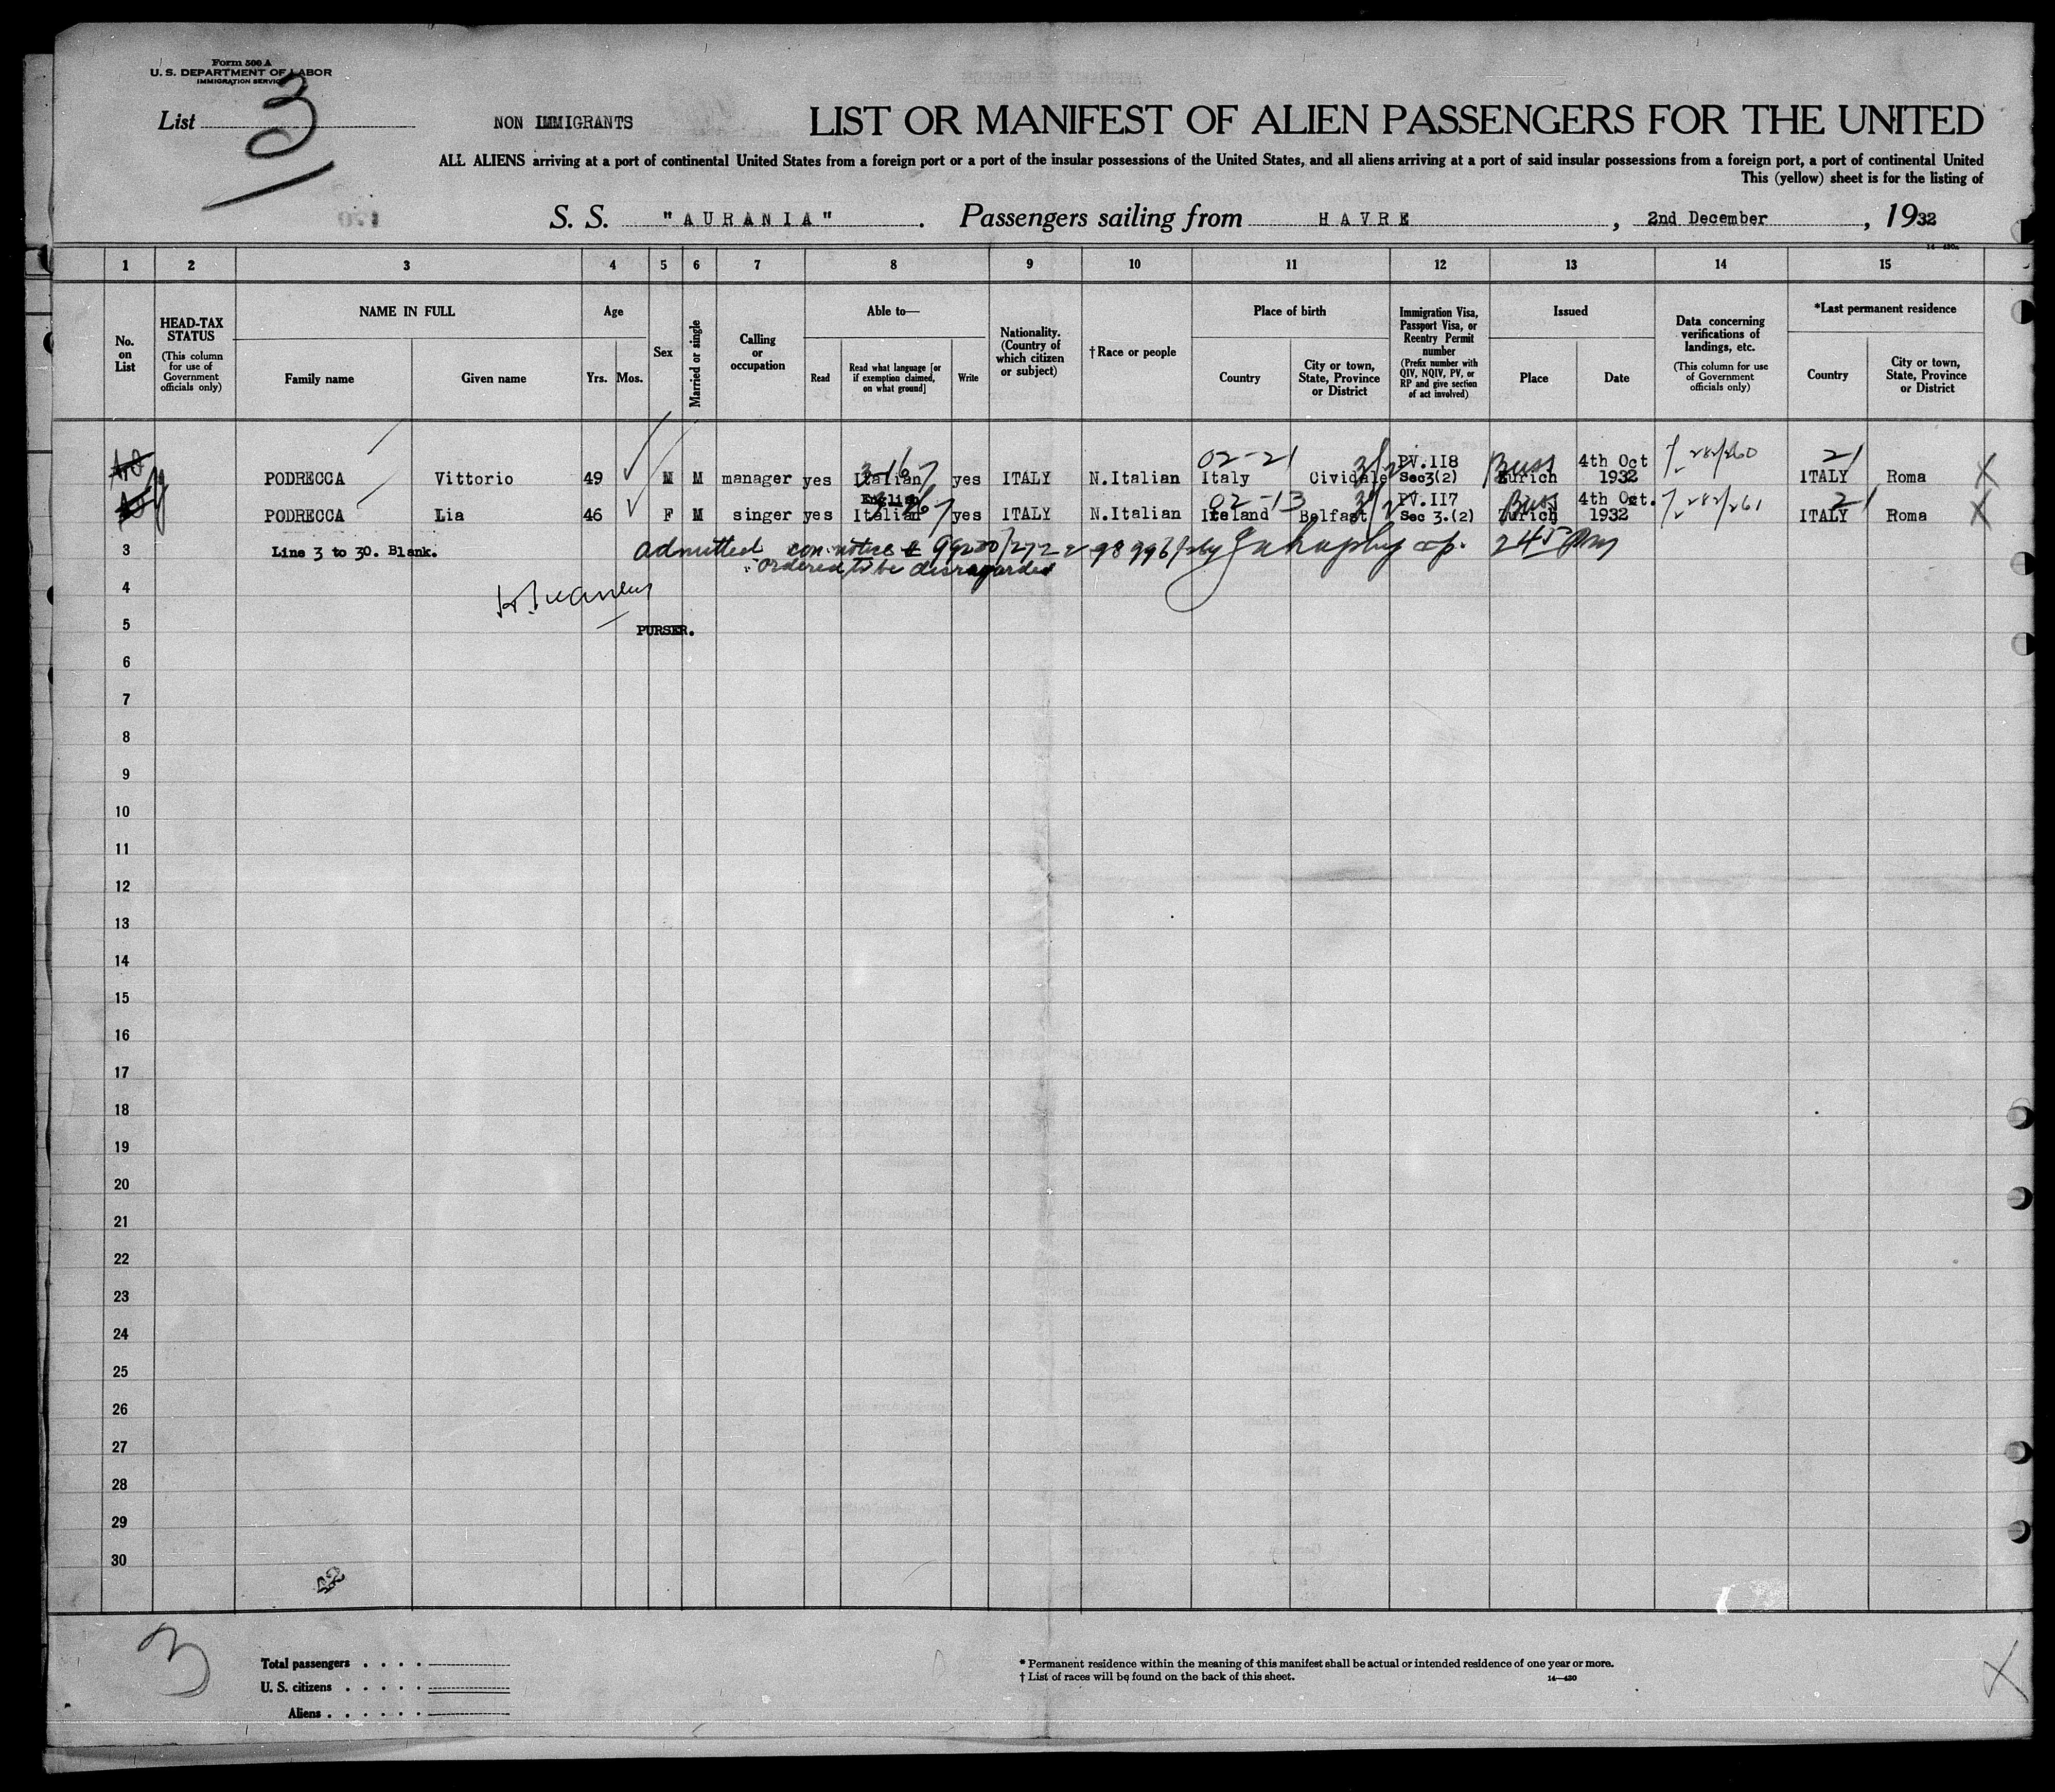 Form 500 A
U. S. DEPARTMENT OF LABOR
IMMIGRATION SERVICE
List 3
NON IMMIGRANTS
LIST OR MANIFEST OF ALIEN PASSENGERS FOR THE UNITED
ALL ALIENS arriving at a port of continental United States from a foreign port or a port of the insular possessions of the United States, and all aliens arriving at a port of said insular possessions from a foreign port, a port of continental United
This (yellow) sheet is for the listing of
S. S. "AURANIA". Passengers sailing from HAVRE, 2nd December, 1932
14—430a
1 2 3 4 5 6 7 8 9 10 11 12 13 14 15
No. on List
HEAD-TAX STATUS (This column for use of Government officials only)
NAME IN FULL
Family name Given name
Age
Yrs. Mos.
Sex
Married or single
Calling or occupation
Able to—
Read
Read what language [or if exemption claimed, on what ground]
Write
Nationality. (Country of which citizen or subject)
†Race or people
Place of birth
Country
City or town, State, Province or District
Immigration Visa, Passport Visa, or Reentry Permit number (Prefix number with QIV, NQIV, PV, or RP and give section of act involved)
Issued
Place Date
Data concerning verifications of landings, etc. (This column for use of Government officials only)
*Last permanent residence
Country
City or town, State, Province or District
02-21 PV.118 4th Oct 21
PODRECCA Vittorio 49 M M manager yes Italian yes ITALY N.Italian Italy Cividale Sec3(2) Zurich 1932 ITALY Roma X
English 02-13 PV.117 4th Oct. 21
PODRECCA Lia 46 F M singer yes Italian yes ITALY N.Italian Ireland Belfast Sec 3.(2) Zurich 1932 ITALY Roma X
3 Line 3 to 30. Blank. admitted 245 PM
ordered to be disregarded
4
5 PURSER.
6
7
8
9
10
11
12
13
14
15
16
17
18
19
20
21
22
23
24
25
26
27
28
29
30
42
3
Total passengers
U. S. citizens
Aliens
* Permanent residence within the meaning of this manifest shall be actual or intended residence of one year or more.
† List of races will be found on the back of this sheet.
14—430
X